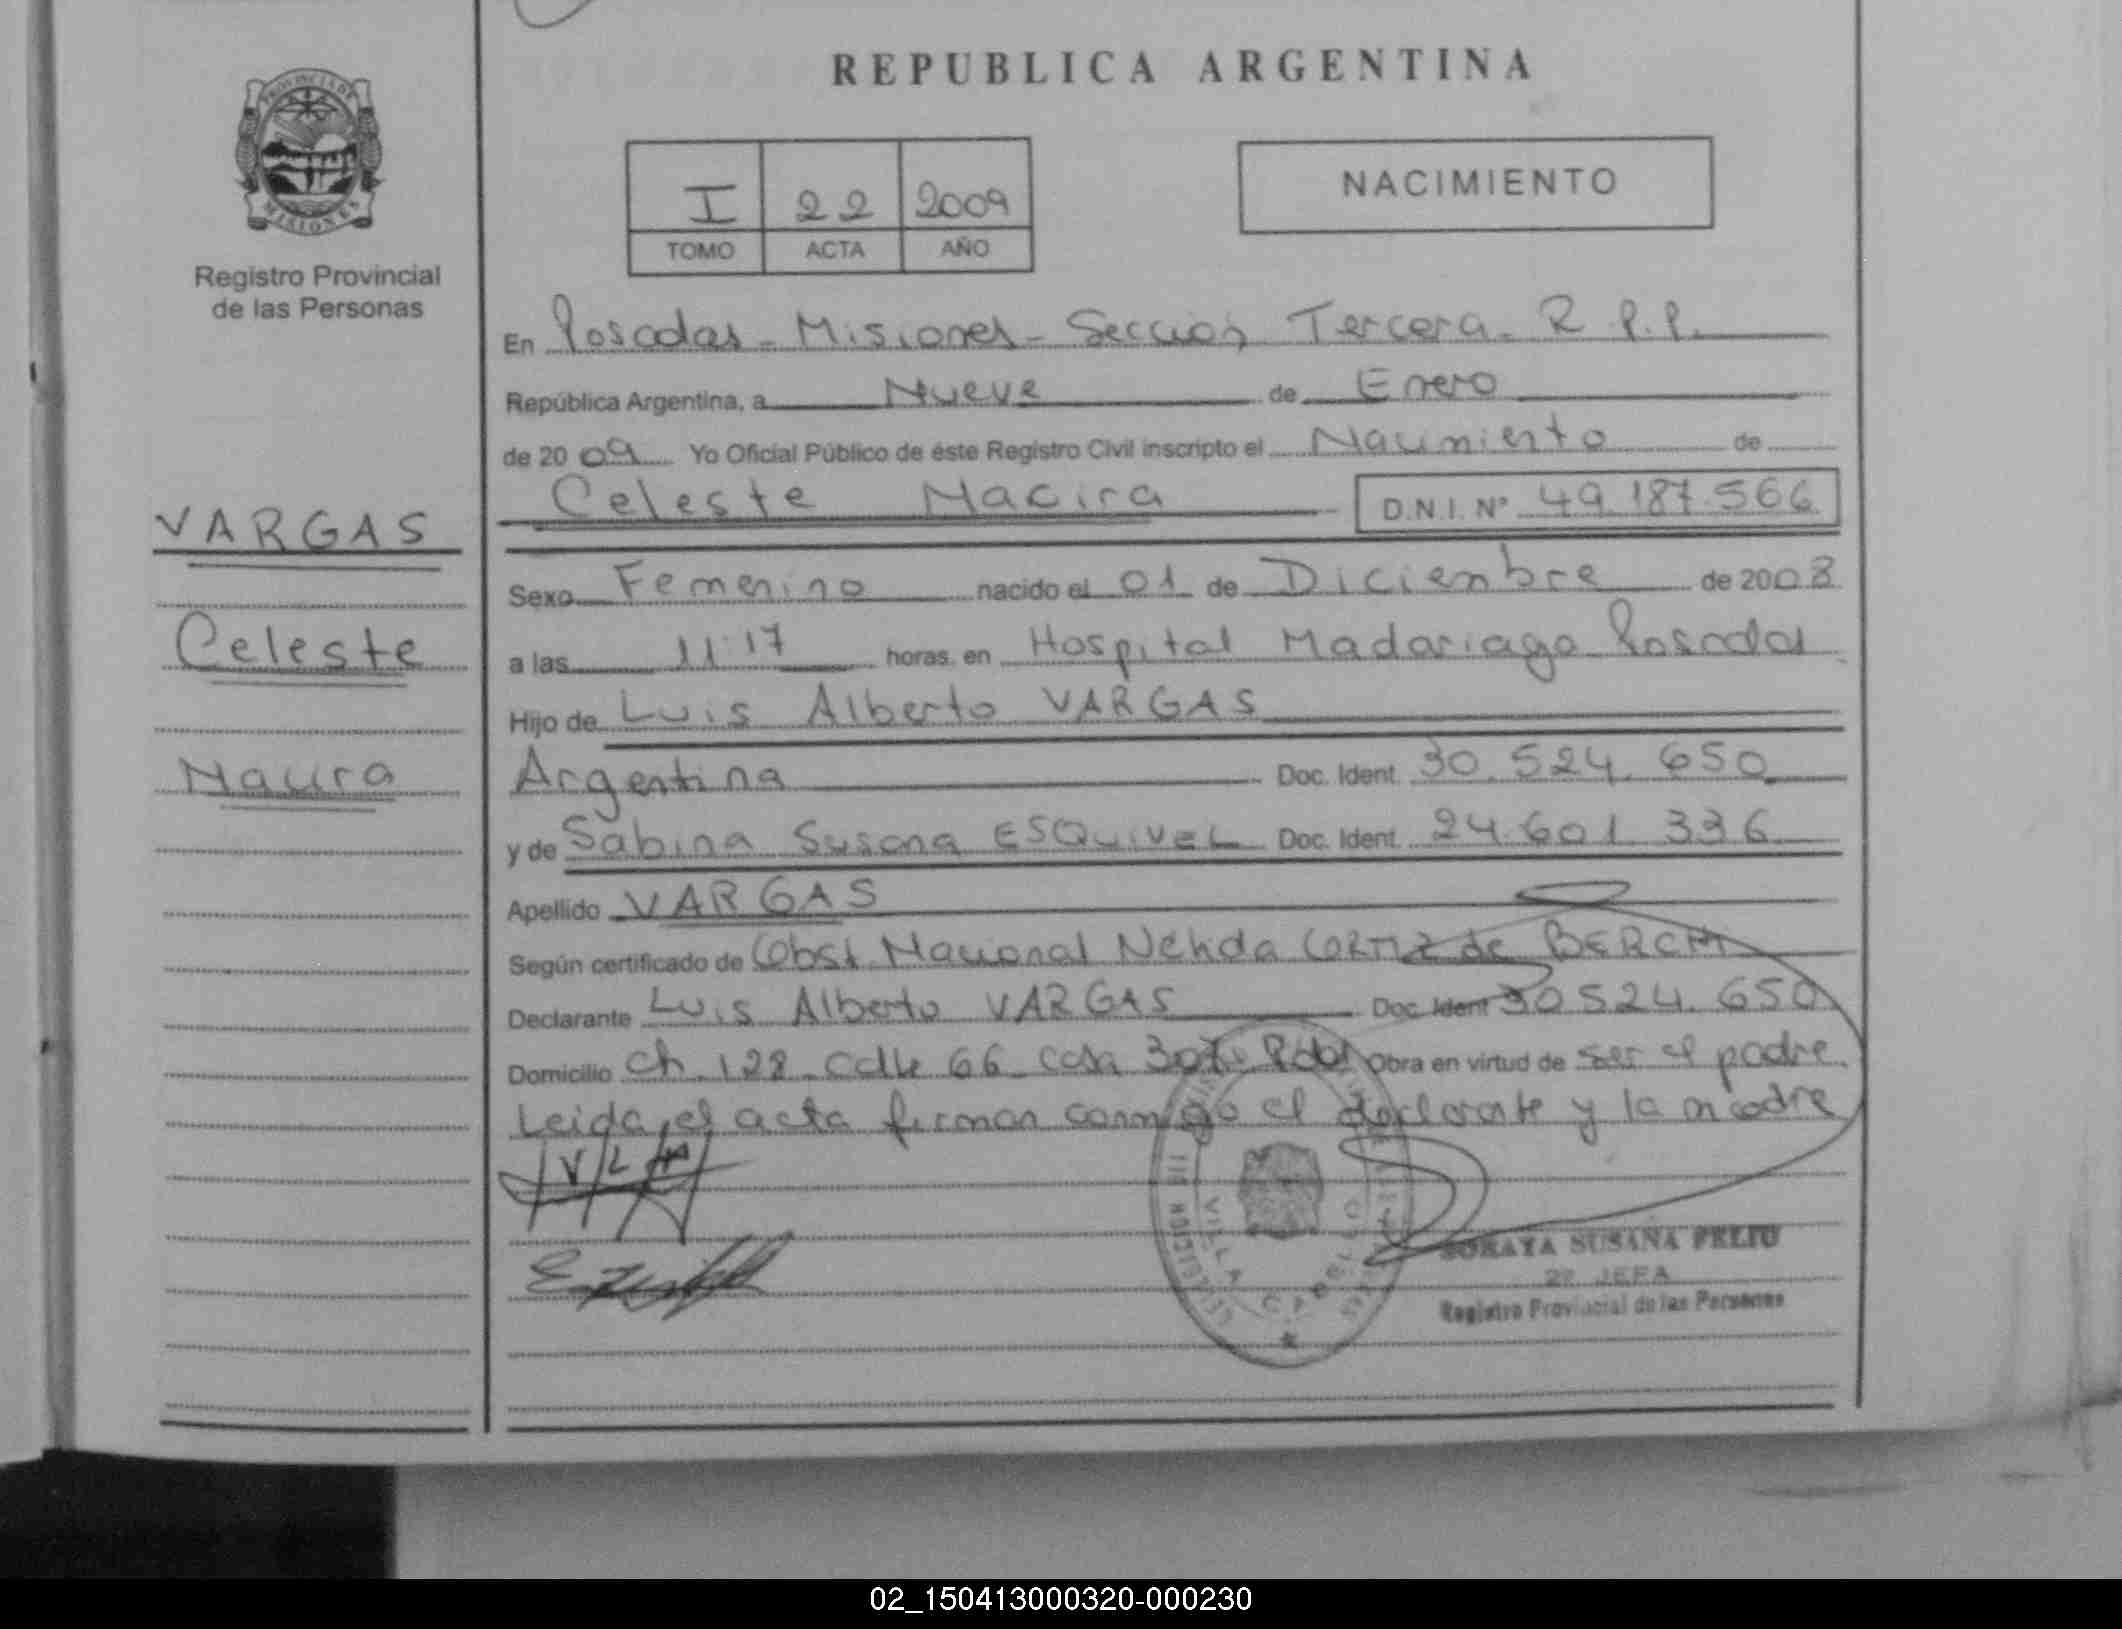 PROVINCIA DE
MISIONES
Registro Provincial
de las Personas
VARGAS
Celeste
Naura
REPUBLICA ARGENTINA
I 22 2009
TOMO ACTA AÑO
NACIMIENTO
En Posadas - Misiones - Sección Tercera - R.P.P.
República Argentina, a Nueve de Enero
de 2009 Yo Oficial Público de éste Registro Civil inscripto el Nacimiento de
Celeste Nacira D.N.I. Nº 49.187.566
Sexo Femenino nacido el 01 de Diciembre de 2008
a las 11:17 horas, en Hospital Madariaga Posadas
Hijo de Luis Alberto VARGAS
Argentina Doc. Ident. 30.524.650
y de Sabina Susana ESQUIVEL Doc. Ident. 24.601.336
Apellido VARGAS
Según certificado de Obst Nacional Nelida CORTIZ de
Declarante Luis Alberto VARGAS Doc. Ident 30524.650
Domicilio Ch 128 calle 66 casa Obra en virtud de ser el padre
Leida el acta firman conmigo el declarante y la madre
VLA
VILLA CABELLO
SORAYA SUSANA FELIU
2º JEFA
Registro Provincial de las Personas
02_150413000320-000230